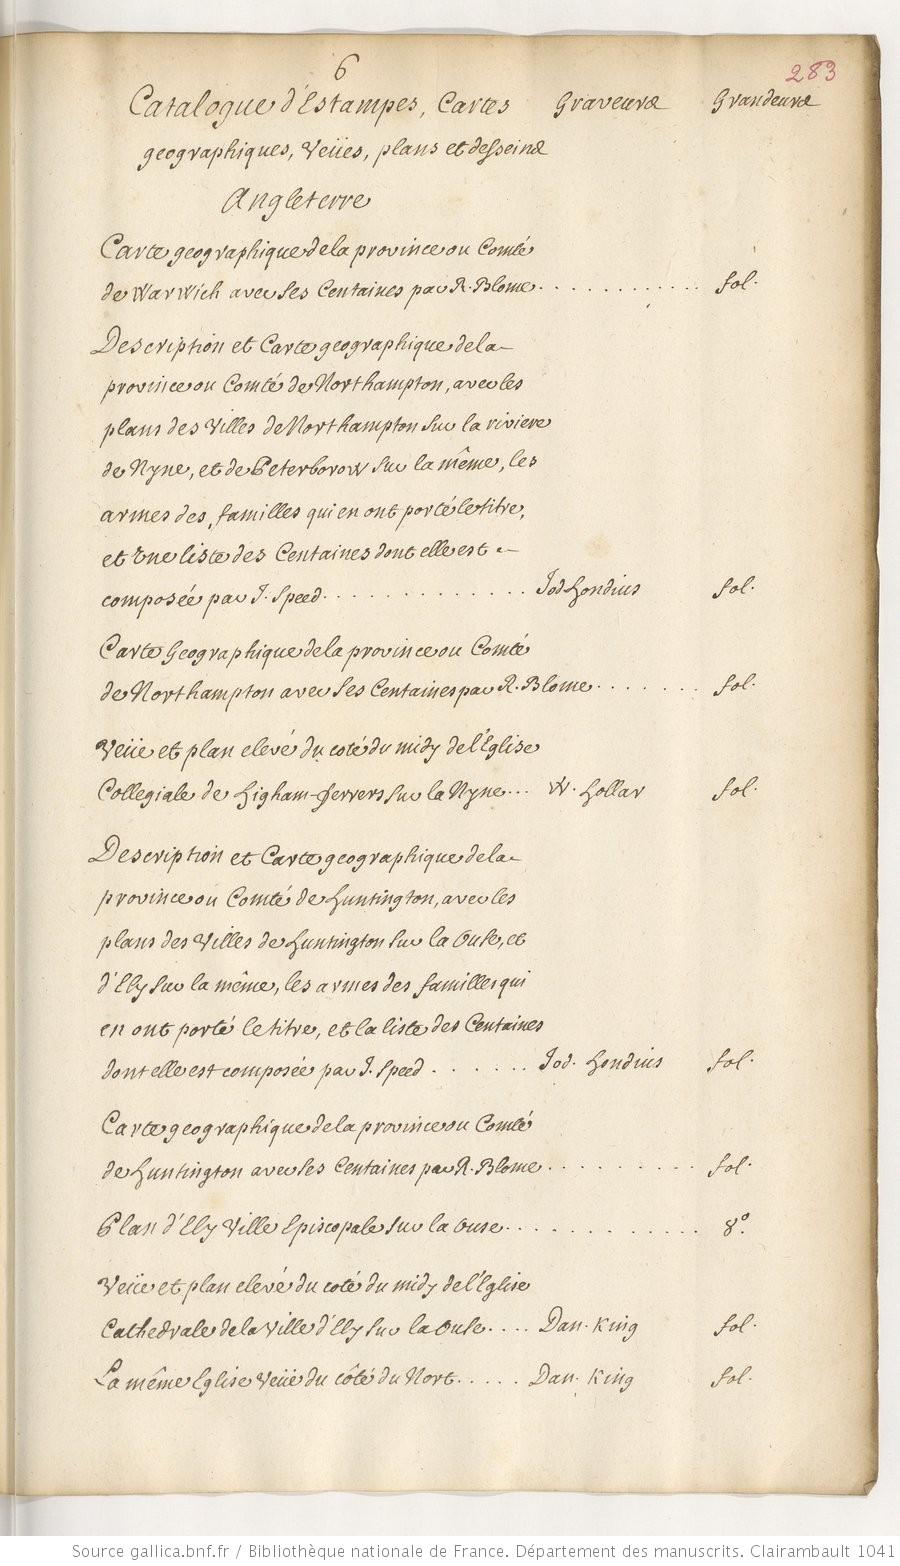 6
283
Catalogue d'Estampes, Cartes Graveurs Grandeurs
geographiques, Veües, plans et desseins
Angleterre
Carte geographique de la province ou Comté
de Warwich avec ses Centaines par R. Blome. fol.
Description et Carte geographique de la
province ou Comté de Northampton, avec les
plans des Villes de Northampton sur la riviere
de Nyne, et de Peterborow sur la même, les
armes des familles qui en ont porté le titre,
et Une liste des Centaines dont elle est
composée par J. Speed. Jod Hondius fol.
Carte Geographique de la province ou Comté
de Northampton avec ses Centaines par R. Blome. fol.
Veüe et plan elevé du coté du midy de l'Eglise
Collegiale de Higham-ferrers sur la Nyne... W. Hollar fol.
Description et Carte geographique de la
province ou Comté de Huntington, avec les
plans des Villes de Huntington sur la Ouse, et
d'Ely sur la même, les armes des familles qui
en ont porté le titre, et la liste des Centaines
dont elle est composée par J. Speed. Jod. Hondius fol.
Carte geographique de la province ou Comté
de Huntington avec ses Centaines par R. Blome. fol.
Plan d'Ely Ville Episcopale sur la Ouse. 8°.
Veüe et plan elevé du coté du midy de l'Eglise
Cathedrale de la Ville d'Ely sur la Ouse.... Dan. King fol.
La même Eglise Veüe du côté du Nort..... Dan. King fol.
Source gallica.bnf.fr / Bibliothèque nationale de France. Département des manuscrits. Clairambault 1041